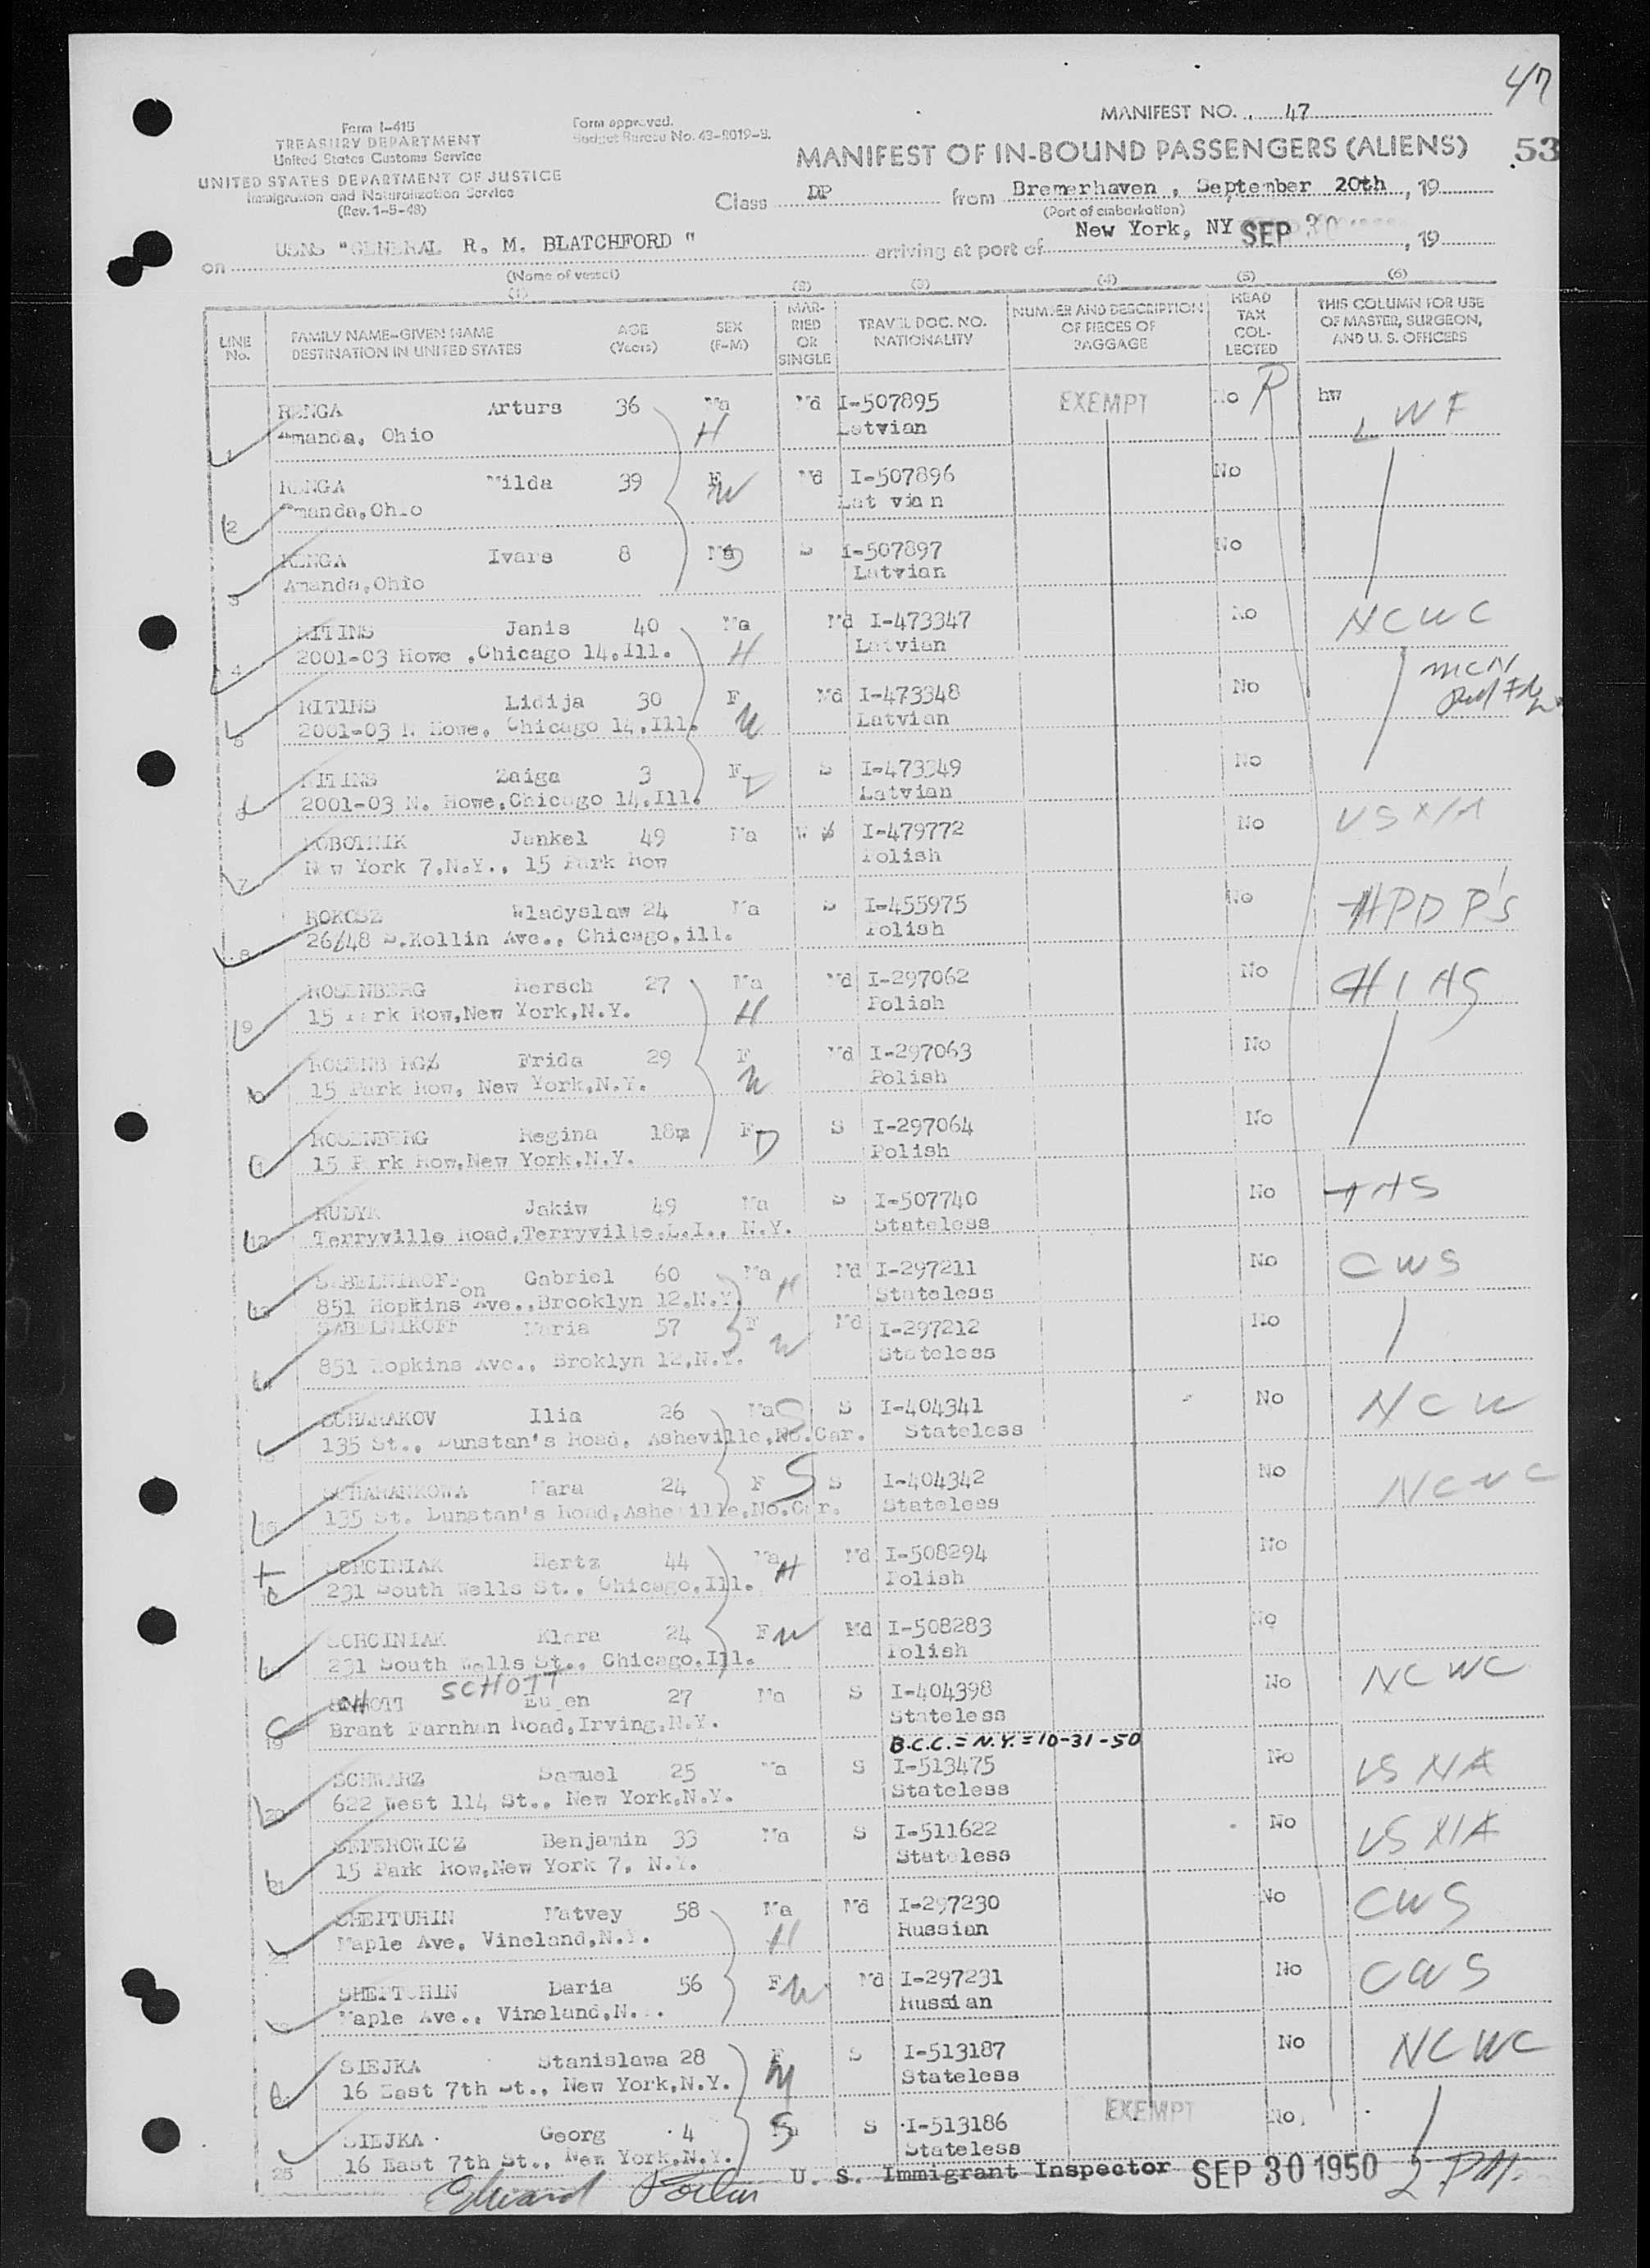 47
MANIFEST NO. 47
Form I-415
TREASURY DEPARTMENT
United States Customs Service
UNITED STATES DEPARTMENT OF JUSTICE
Immigration and Naturalization Service
(Rev. 1-5-48)
Form approved.
Budget Bureau No. 43-R019-3.
MANIFEST OF IN-BOUND PASSENGERS (ALIENS) 53
Class DP from Bremerhaven, September 20th, 19
(Port of embarkation)
on USNS "GENERAL R. M. BLATCHFORD " arriving at port of New York, NY SEP 30, 19
(Name of vessel)
(1) (2) (3) (4) (5) (6)
LINE No. FAMILY NAME-GIVEN NAME DESTINATION IN UNITED STATES AGE (Years) SEX (F-M) MARRIED OR SINGLE TRAVEL DOC. NO. NATIONALITY NUMBER AND DESCRIPTION OF PIECES OF BAGGAGE HEAD TAX COLLECTED THIS COLUMN FOR USE OF MASTER, SURGEON, AND U. S. OFFICERS
1 RENGA Arturs 36 Ma H Md I-507895 EXEMPT No hw LWF
Amanda, Ohio Latvian
2 RENGA Milda 39 F W Md I-507896 No
Amanda,Ohio Latvian
3 RENGA Ivars 8 Ma S I-507897 No
Amanda,Ohio Latvian
4 RITINS Janis 40 Ma H Md I-473347 No NCWC
2001-03 Howe ,Chicago 14,Ill. Latvian
5 RITINS Lidija 30 F W Md I-473348 No
2001-03 N Howe, Chicago 14,Ill. Latvian
6 RITINS Zaiga 3 F D S I-473349 No
2001-03 N. Howe,Chicago 14,Ill. Latvian
7 ROBOTNIK Jankel 49 Ma W I-479772 No USNA
New York 7,N.Y., 15 Park Row Polish
8 ROKOSZ Wladyslaw 24 Ma S I-455975 No
2648 S.Kollin Ave., Chicago,ill. Polish
9 ROSENBERG Hersch 27 Ma H Md I-297062 No HIAS
15 Park Row,New York,N.Y. Polish
10 ROSENBERG Frida 29 F W Md I-297063 No
15 Park Row, New York,N.Y. Polish
11 ROSENBERG Regina 18m F D S I-297064 No
15 Park Row,New York,N.Y. Polish
12 RUDYK Jakiw 49 Ma S I-507740 No
Terryville Road,Terryville,L.I., N.Y. Stateless
13 SABELNIKOFF Gabriel 60 Ma H Md I-297211 No CWS
851 Hopkinson Ave.,Brooklyn 12,N.Y. Stateless
14 SABELNIKOFF Maria 57 F W Md I-297212 No
851 Hopkins Ave., Broklyn 12,N.Y. Stateless
15 Ilia 26 Ma S S I-404341 No NCW
135 St., Dunstan's Road, Asheville,No.Car. Stateless
16 SCHARANKOWA Mara 24 F S S I-404342 No NCWC
135 St. Dunstan's Road,Asheville,No.Car. Stateless
SCHCINIAK Hertz 44 Ma H Md I-508294 No
231 South Wells St., Chicago,Ill. Polish
SCHCINIAK Klara 24 F W Md I-508283 No
231 South Wells St., Chicago,Ill. Polish
19 SCHOTT Eugen 27 Ma S I-404398 No NCWC
Brant Farnham Road,Irving,N.Y. Stateless
B.C.C. = N.Y. = 10-31-50
20 SCHWARZ Samuel 25 Ma S I-513475 No USNA
622 West 114 St., New York,N.Y. Stateless
21 SEFEROWICZ Benjamin 33 Ma S I-511622 No USNA
15 Park Row,New York 7, N.Y. Stateless
SHEITUHIN Matvey 58 Ma H Md I-297230 No CWS
Maple Ave, Vineland,N. Russian
SHEITUHIN Daria 56 F W Md I-297231 No CWS
Maple Ave., Vineland,N. Russian
SIEJKA Stanislawa 28 F M S I-513187 No NCWC
16 East 7th St., New York,N.Y. Stateless
25 SIEJKA Georg 4 S S I-513186 EXEMPT No
16 East 7th St., New York,N.Y. Stateless
Edward U. S. Immigrant Inspector SEP 30 1950 2 PM.